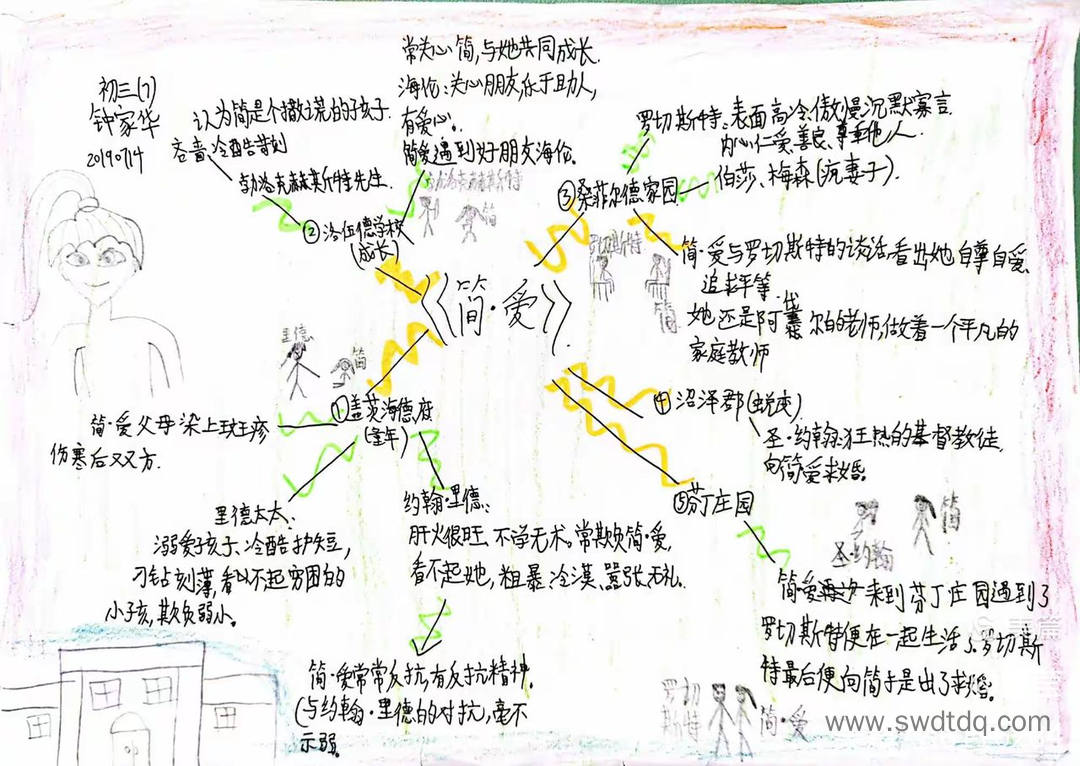 初三(7)
钟家华
20190714
认为简是个撒谎的孩子
吝啬、冷酷苛刻
勃洛克赫斯特先生.
②洛伍德学校
(成长)
常关心简,与她共同成长.
海伦:关心朋友,乐于助人,
有爱心。
简爱遇到好朋友海伦.
勃洛克赫斯特
简
③桑菲尔德家园.
罗切斯特:表面高冷、傲慢沉默寡言.
内心仁爱、善良、尊重他人.
伯莎、梅森(疯妻子).
罗切斯特
简
简·爱与罗切斯特的谈话,看出她自尊自爱.
追求平等.
她还是阿黛尔的老师,做着一个平凡的
家庭教师
《简·爱》
里德
简
①盖茨海德府
(童年)
简·爱父母染上斑疹
伤寒后双双亡.
里德太太.
溺爱孩子、冷酷护短,
刁钻刻薄,看不起穷困的
小孩,欺负弱小。
约翰·里德:
肝火很旺、不学无术。常欺负简·爱,
看不起她,粗暴、冷漠、嚣张无礼.
简·爱常常反抗,有反抗精神.
(与约翰·里德的对抗,毫不
示弱。
④沼泽郡(蜕变)
圣·约翰:狂热的基督教徒
向简爱求婚。
⑤芬丁庄园
圣·约翰
简
简·爱来到芬丁庄园遇到了
罗切斯特便在一起生活了.罗切斯
特最后便向简于是出了求婚.
罗切
斯特
简·爱
www.swdtdq.com